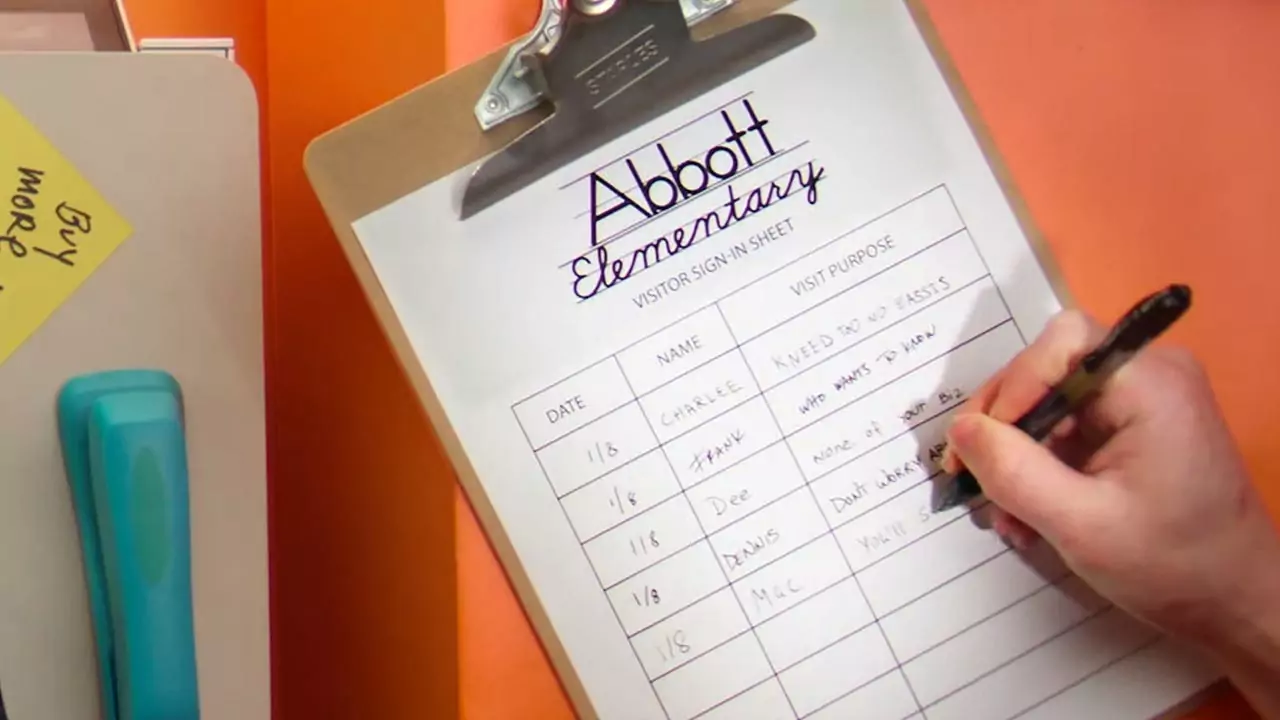 STAPLES
Abbott
Elementary
VISITOR SIGN-IN SHEET
DATE NAME VISIT PURPOSE
1/8 CHARLEE KNEED TOO NO BASSIS
1/8 FRANK WHO WANTS TO KNOW
1/8 Dee NONE OF YOUR BIZ
1/8 DENNIS DONT WORRY
1/8 Mac YOU'LL
Buy
more